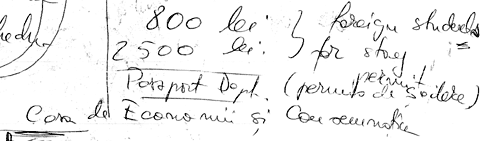 800 lei } foreign students
2500 lei } for stay permit
Passport Dept. (permis de ședere)
Casa de Economii și Consemnațiuni